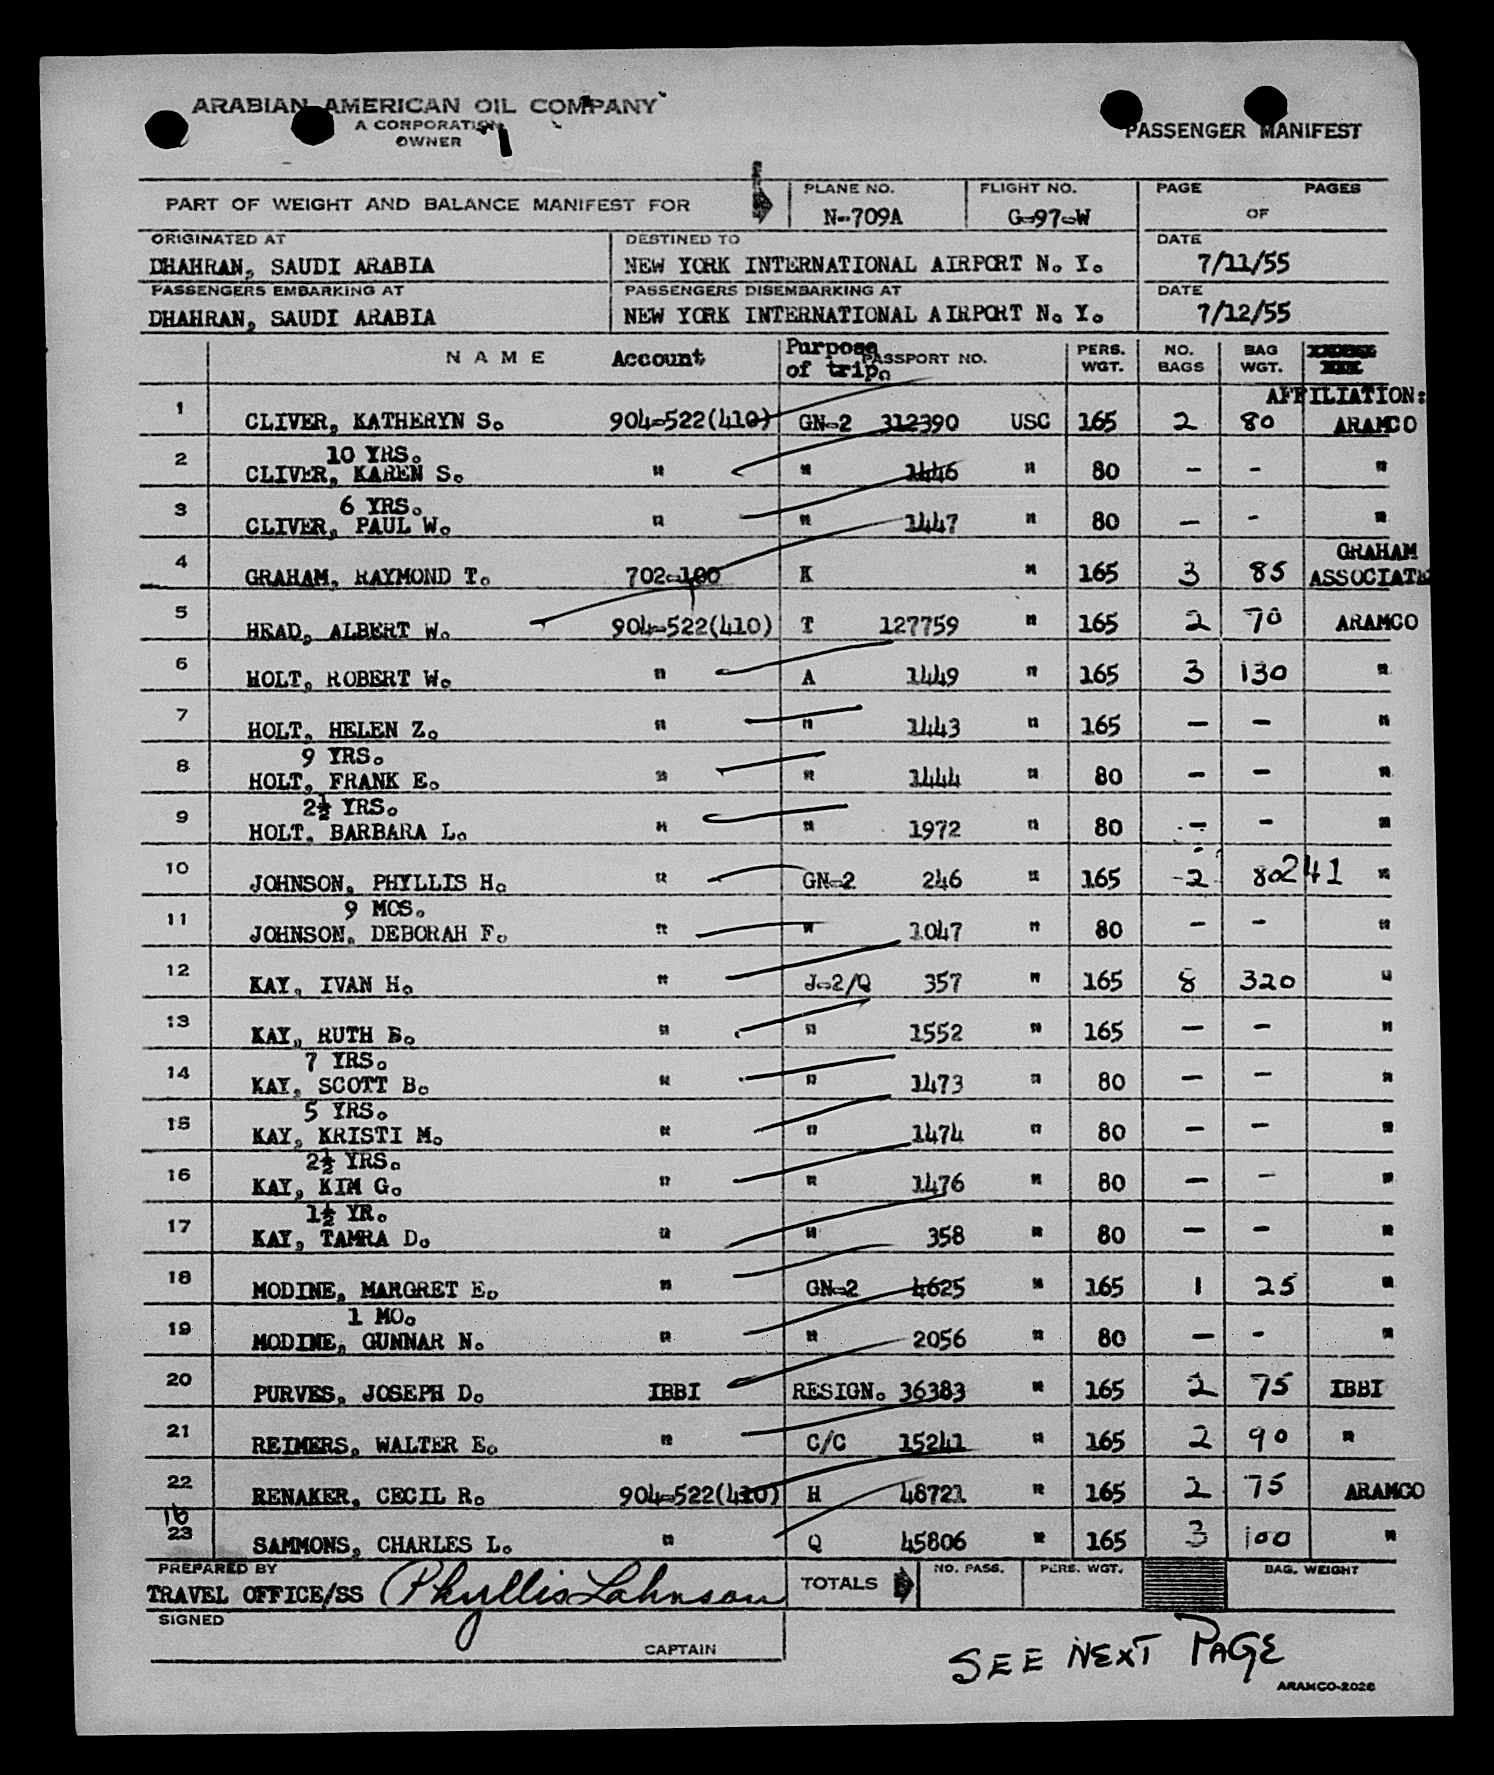 ARABIAN AMERICAN OIL COMPANY
A CORPORATION
OWNER
PASSENGER MANIFEST
PART OF WEIGHT AND BALANCE MANIFEST FOR
PLANE NO. FLIGHT NO. PAGE PAGES
N-709A G-97-W OF
ORIGINATED AT DESTINED TO DATE
DHAHRAN, SAUDI ARABIA NEW YORK INTERNATIONAL AIRPORT N. Y. 7/11/55
PASSENGERS EMBARKING AT PASSENGERS DISEMBARKING AT DATE
DHAHRAN, SAUDI ARABIA NEW YORK INTERNATIONAL AIRPORT N. Y. 7/12/55
NAME Account Purpose of trip. PASSPORT NO. PERS. WGT. NO. BAGS BAG WGT.
AFFILIATION:
1 CLIVER, KATHERYN S. 904-522(410) GN-2 312390 USC 165 2 80 ARAMCO
10 YRS.
2 CLIVER, KAREN S. " " 1446 " 80 - - "
6 YRS.
3 CLIVER, PAUL W. " " 1447 " 80 - - "
GRAHAM
4 GRAHAM, RAYMOND T. 702-100 K " 165 3 85 ASSOCIATE
5 HEAD, ALBERT W. 904-522(410) T 127759 " 165 2 70 ARAMCO
6 HOLT, ROBERT W. " A 1449 " 165 3 130 "
7 HOLT, HELEN Z. " " 1443 " 165 - - "
9 YRS.
8 HOLT, FRANK E. " " 1444 " 80 - - "
2½ YRS.
9 HOLT, BARBARA L. " " 1972 " 80 - - "
10 JOHNSON, PHYLLIS H. " GN-2 246 " 165 2 80 241 "
9 MOS.
11 JOHNSON, DEBORAH F. " " 1047 " 80 - - "
12 KAY, IVAN H. " J-2/Q 357 " 165 8 320 "
13 KAY, RUTH B. " " 1552 " 165 - - "
7 YRS.
14 KAY, SCOTT B. " " 1473 " 80 - - "
5 YRS.
15 KAY, KRISTI M. " " 1474 " 80 - - "
2½ YRS.
16 KAY, KIM G. " " 1476 " 80 - - "
1½ YR.
17 KAY, TAMRA D. " " 358 " 80 - - "
18 MODINE, MARGRET E. " GN-2 4625 " 165 1 25 "
1 MO.
19 MODINE, GUNNAR N. " " 2056 " 80 - - "
20 PURVES, JOSEPH D. IBBI RESIGN. 36383 " 165 2 75 IBBI
21 REIMERS, WALTER E. " C/C 15241 " 165 2 90 "
22 RENAKER, CECIL R. 904-522(410) H 48721 " 165 2 75 ARAMCO
16
23 SAMMONS, CHARLES L. " Q 45806 " 165 3 100 "
PREPARED BY TOTALS NO. PASS. PERS. WGT. BAG. WEIGHT
TRAVEL OFFICE/SS Phyllis Johnson
SIGNED
CAPTAIN
SEE NEXT PAGE
ARAMCO-2026